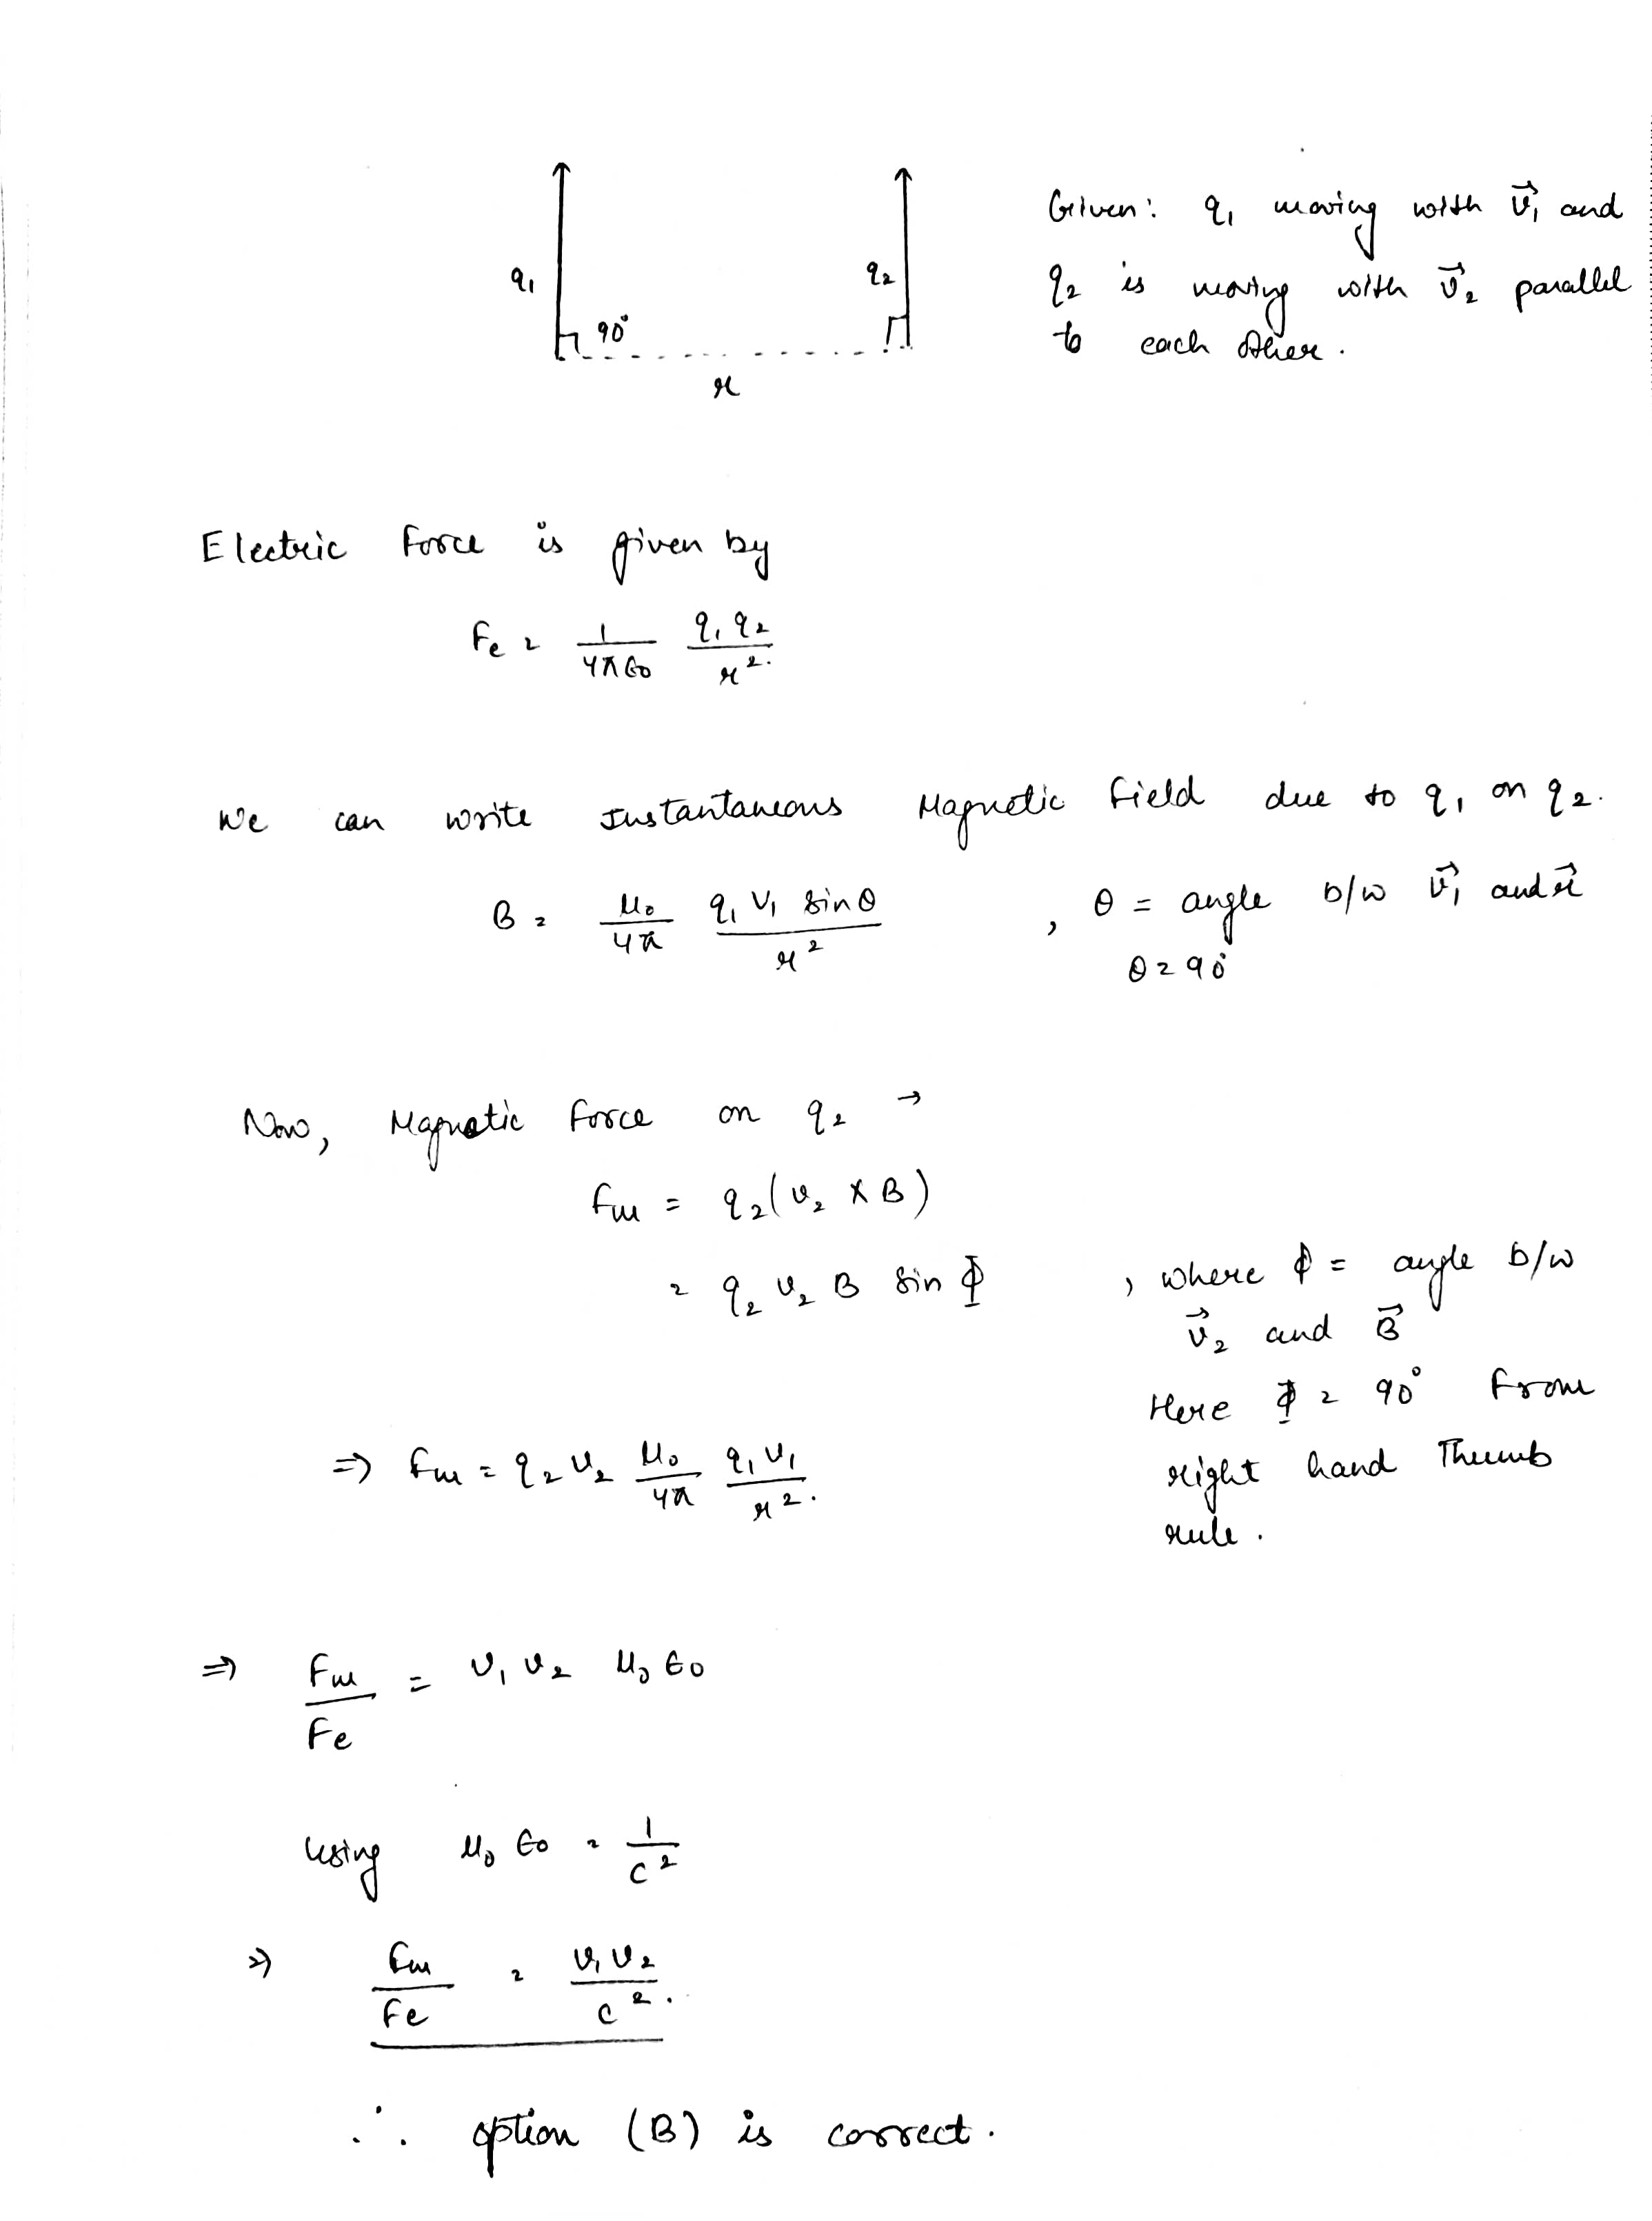 q₁ q₂
90°
r
Given: q₁ moving with v⃗₁ and
q₂ is moving with v⃗₂ parallel
to each other.
Electric force is given by
Fe = 1/4πϵ₀ q₁q₂/r².
We can write Instantaneous Magnetic field due to q₁ on q₂.
B = μ₀/4π q₁v₁ sinθ/r² , θ = angle b/w v⃗₁ and r⃗
θ = 90°
Now, Magnetic force on q₂ →
Fm = q₂(v₂ × B)
= q₂ v₂ B sin Φ , where Φ = angle b/w
v⃗₂ and B⃗
Here Φ = 90° from
⇒ Fm = q₂v₂ μ₀/4π q₁v₁/r². right hand Thumb
rule.
⇒ Fm/Fe = v₁v₂ μ₀ϵ₀
using μ₀ϵ₀ = 1/c²
⇒ Fm/Fe = v₁v₂/c².
∴ option (B) is correct.